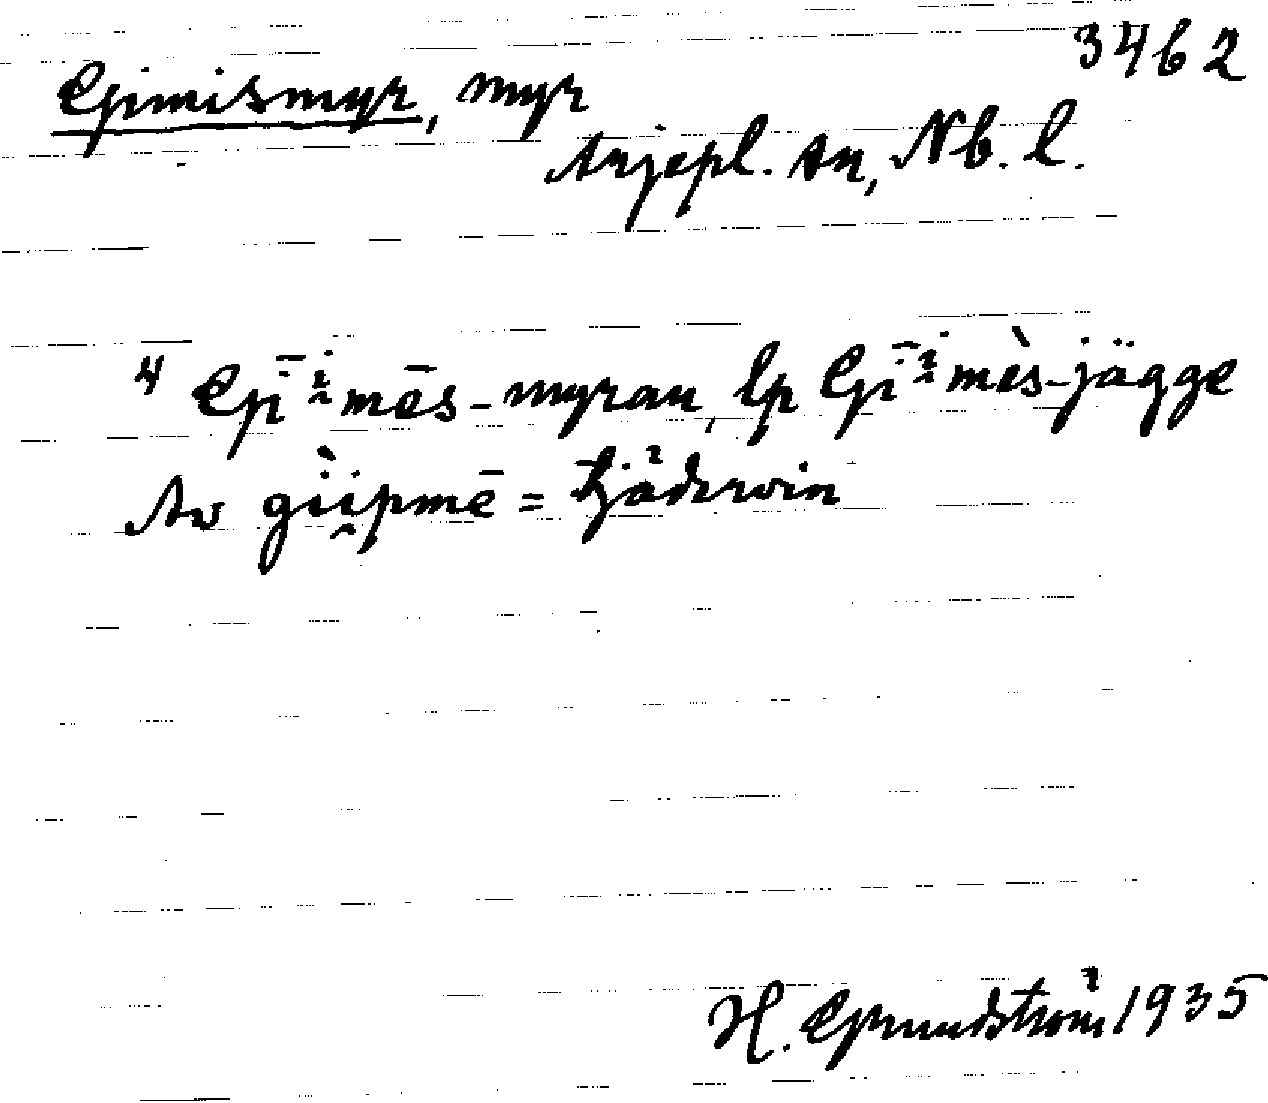 3462
Gimismyr, myr
Arjepl. sn, Nb. l.
4 Gī²mēs-myran, lp Gī²mès-jägge
Av gìi̭pmē = tjädervin
H. Grundström 1935